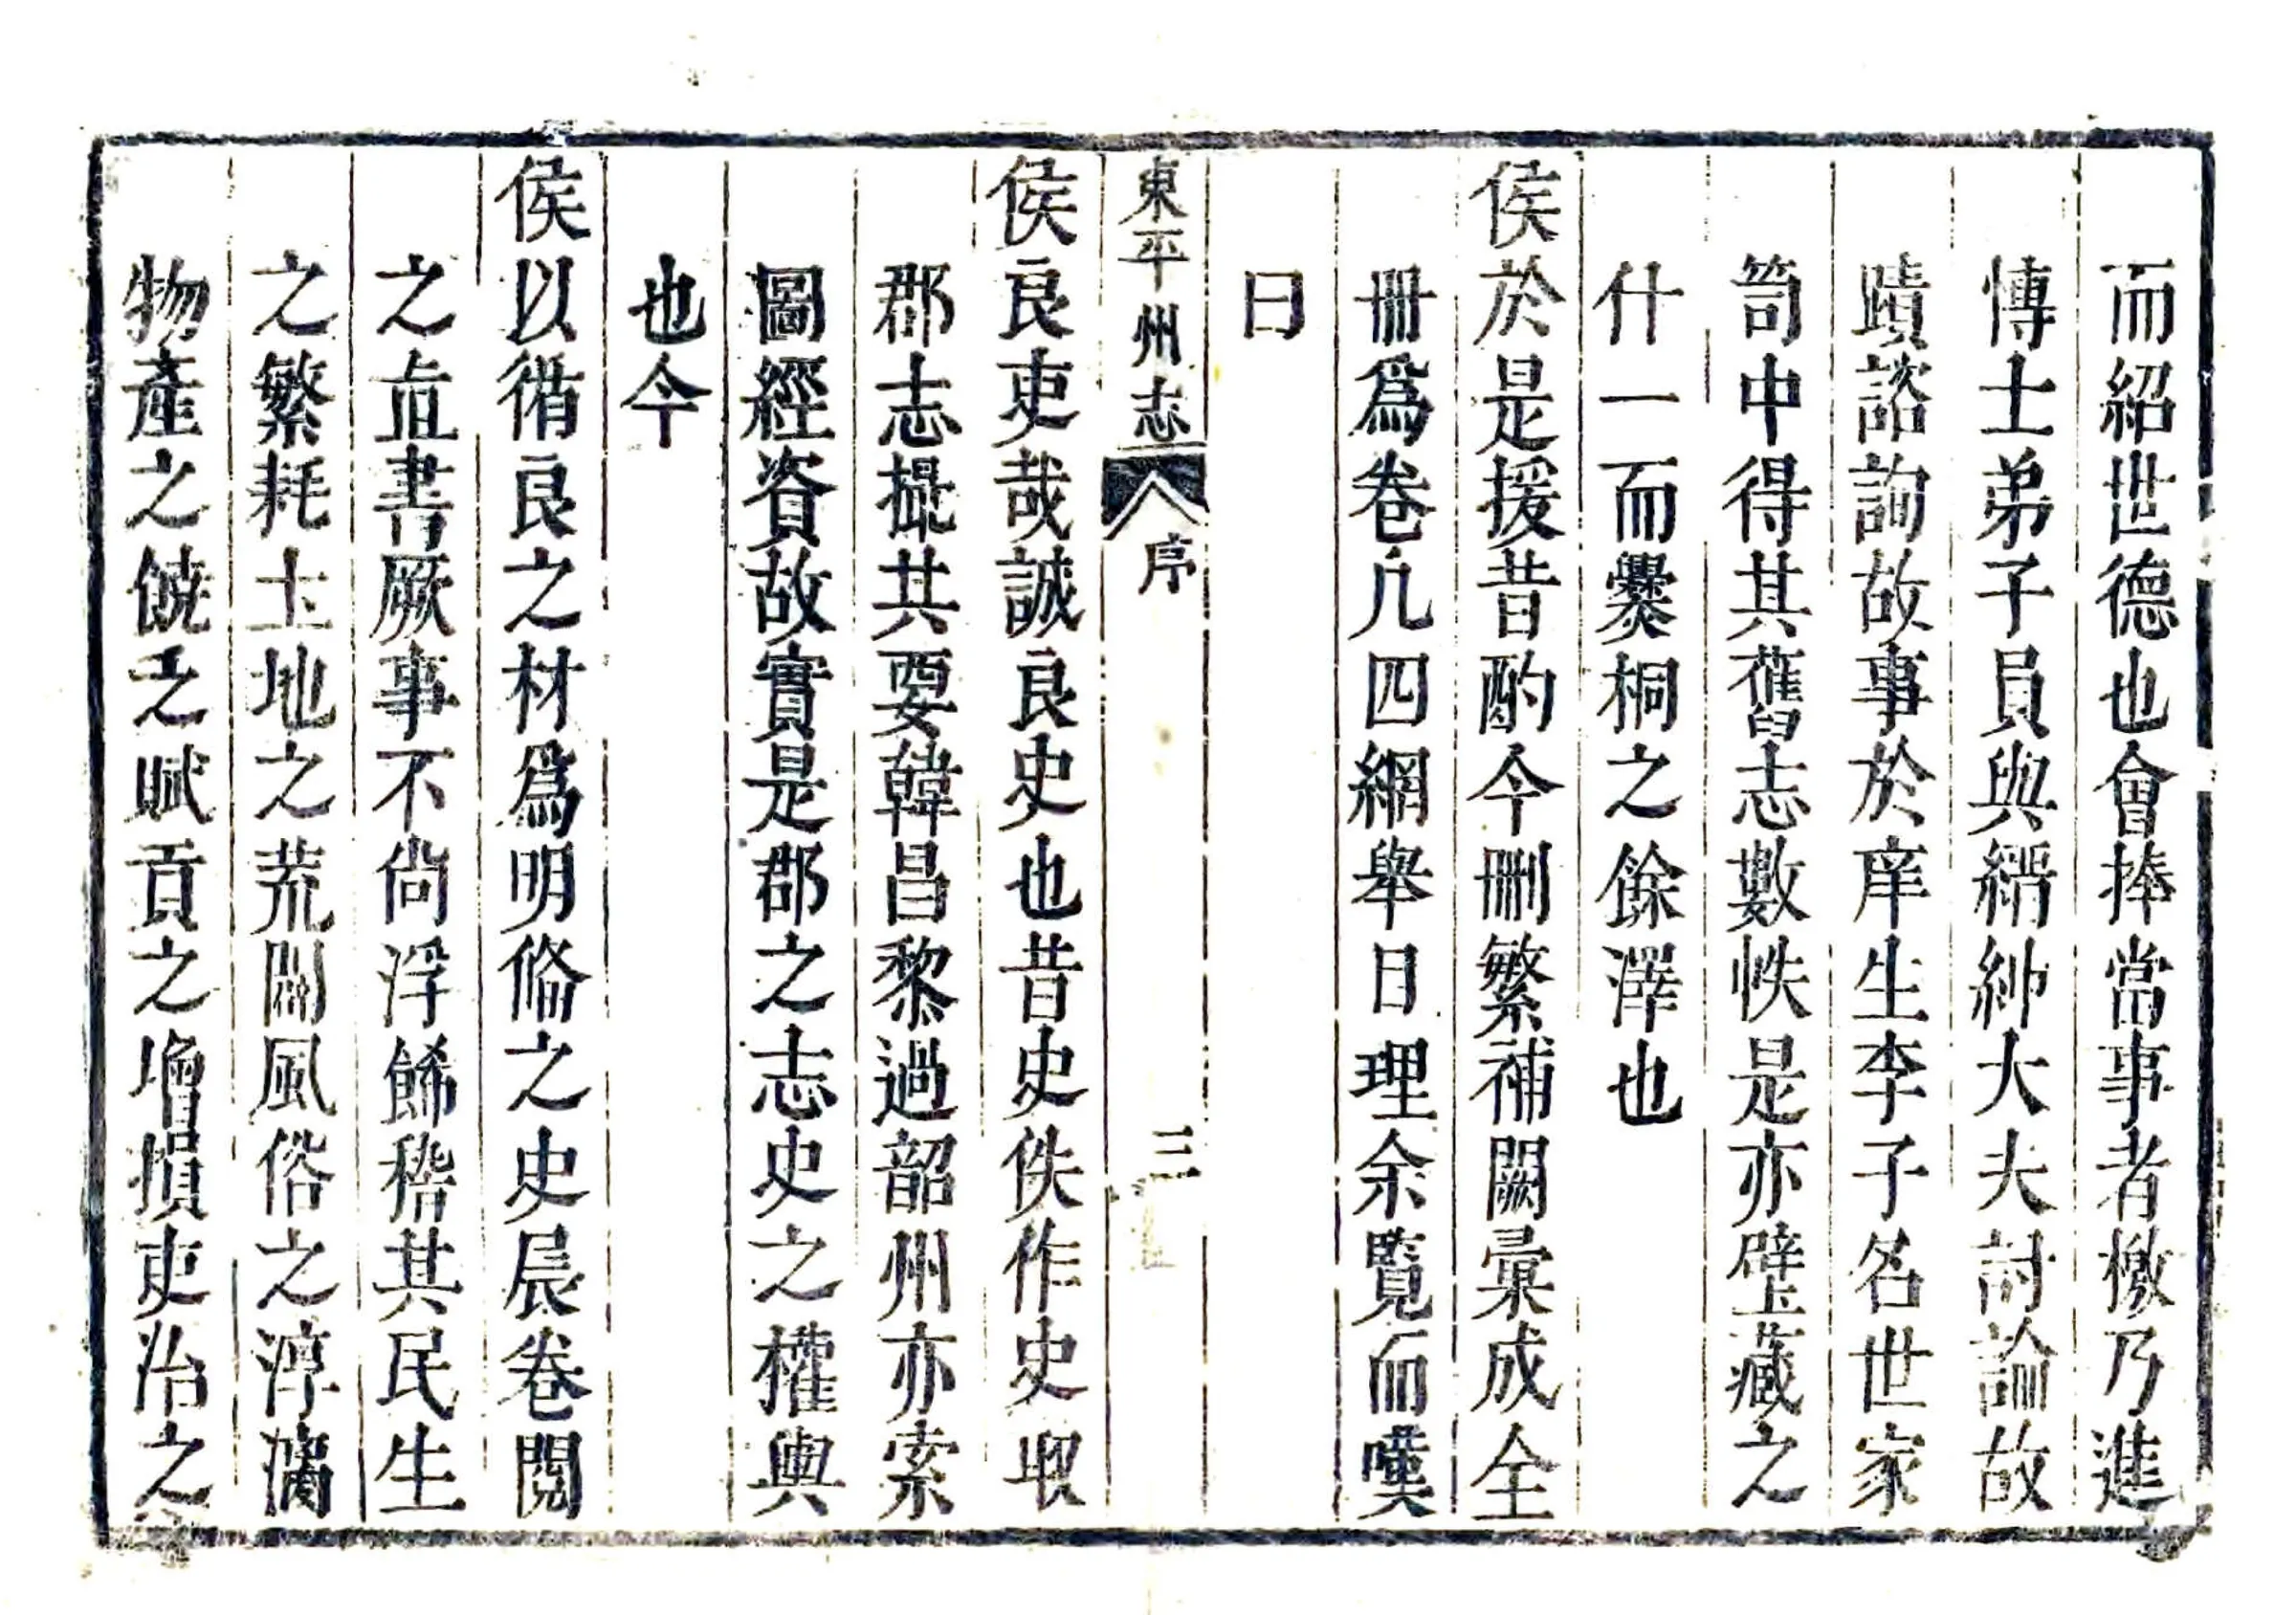 而紹世德也會捧當事者檄乃進
博士弟子員與縉紳大夫討論故
蹟諮詢故事於庠生李子名世家
笥中得其舊志數帙是亦壁藏之
什一而爨桐之餘澤也
侯於是援昔酌今刪繁補闕彙成全
冊爲卷凡四網舉日理余覽而嘆
曰
東平州志 序 三
侯良吏哉誠良史也昔史佚作史取
郡志撮其要韓昌黎過韶州亦索
圖經資故實是郡之志史之權輿
也今
侯以循良之材爲明脩之史晨卷閱
之直書厥事不尚浮餙稽其民生
之繁耗土地之荒闢風俗之淳漓
物產之饒乏賦貢之增損吏治之